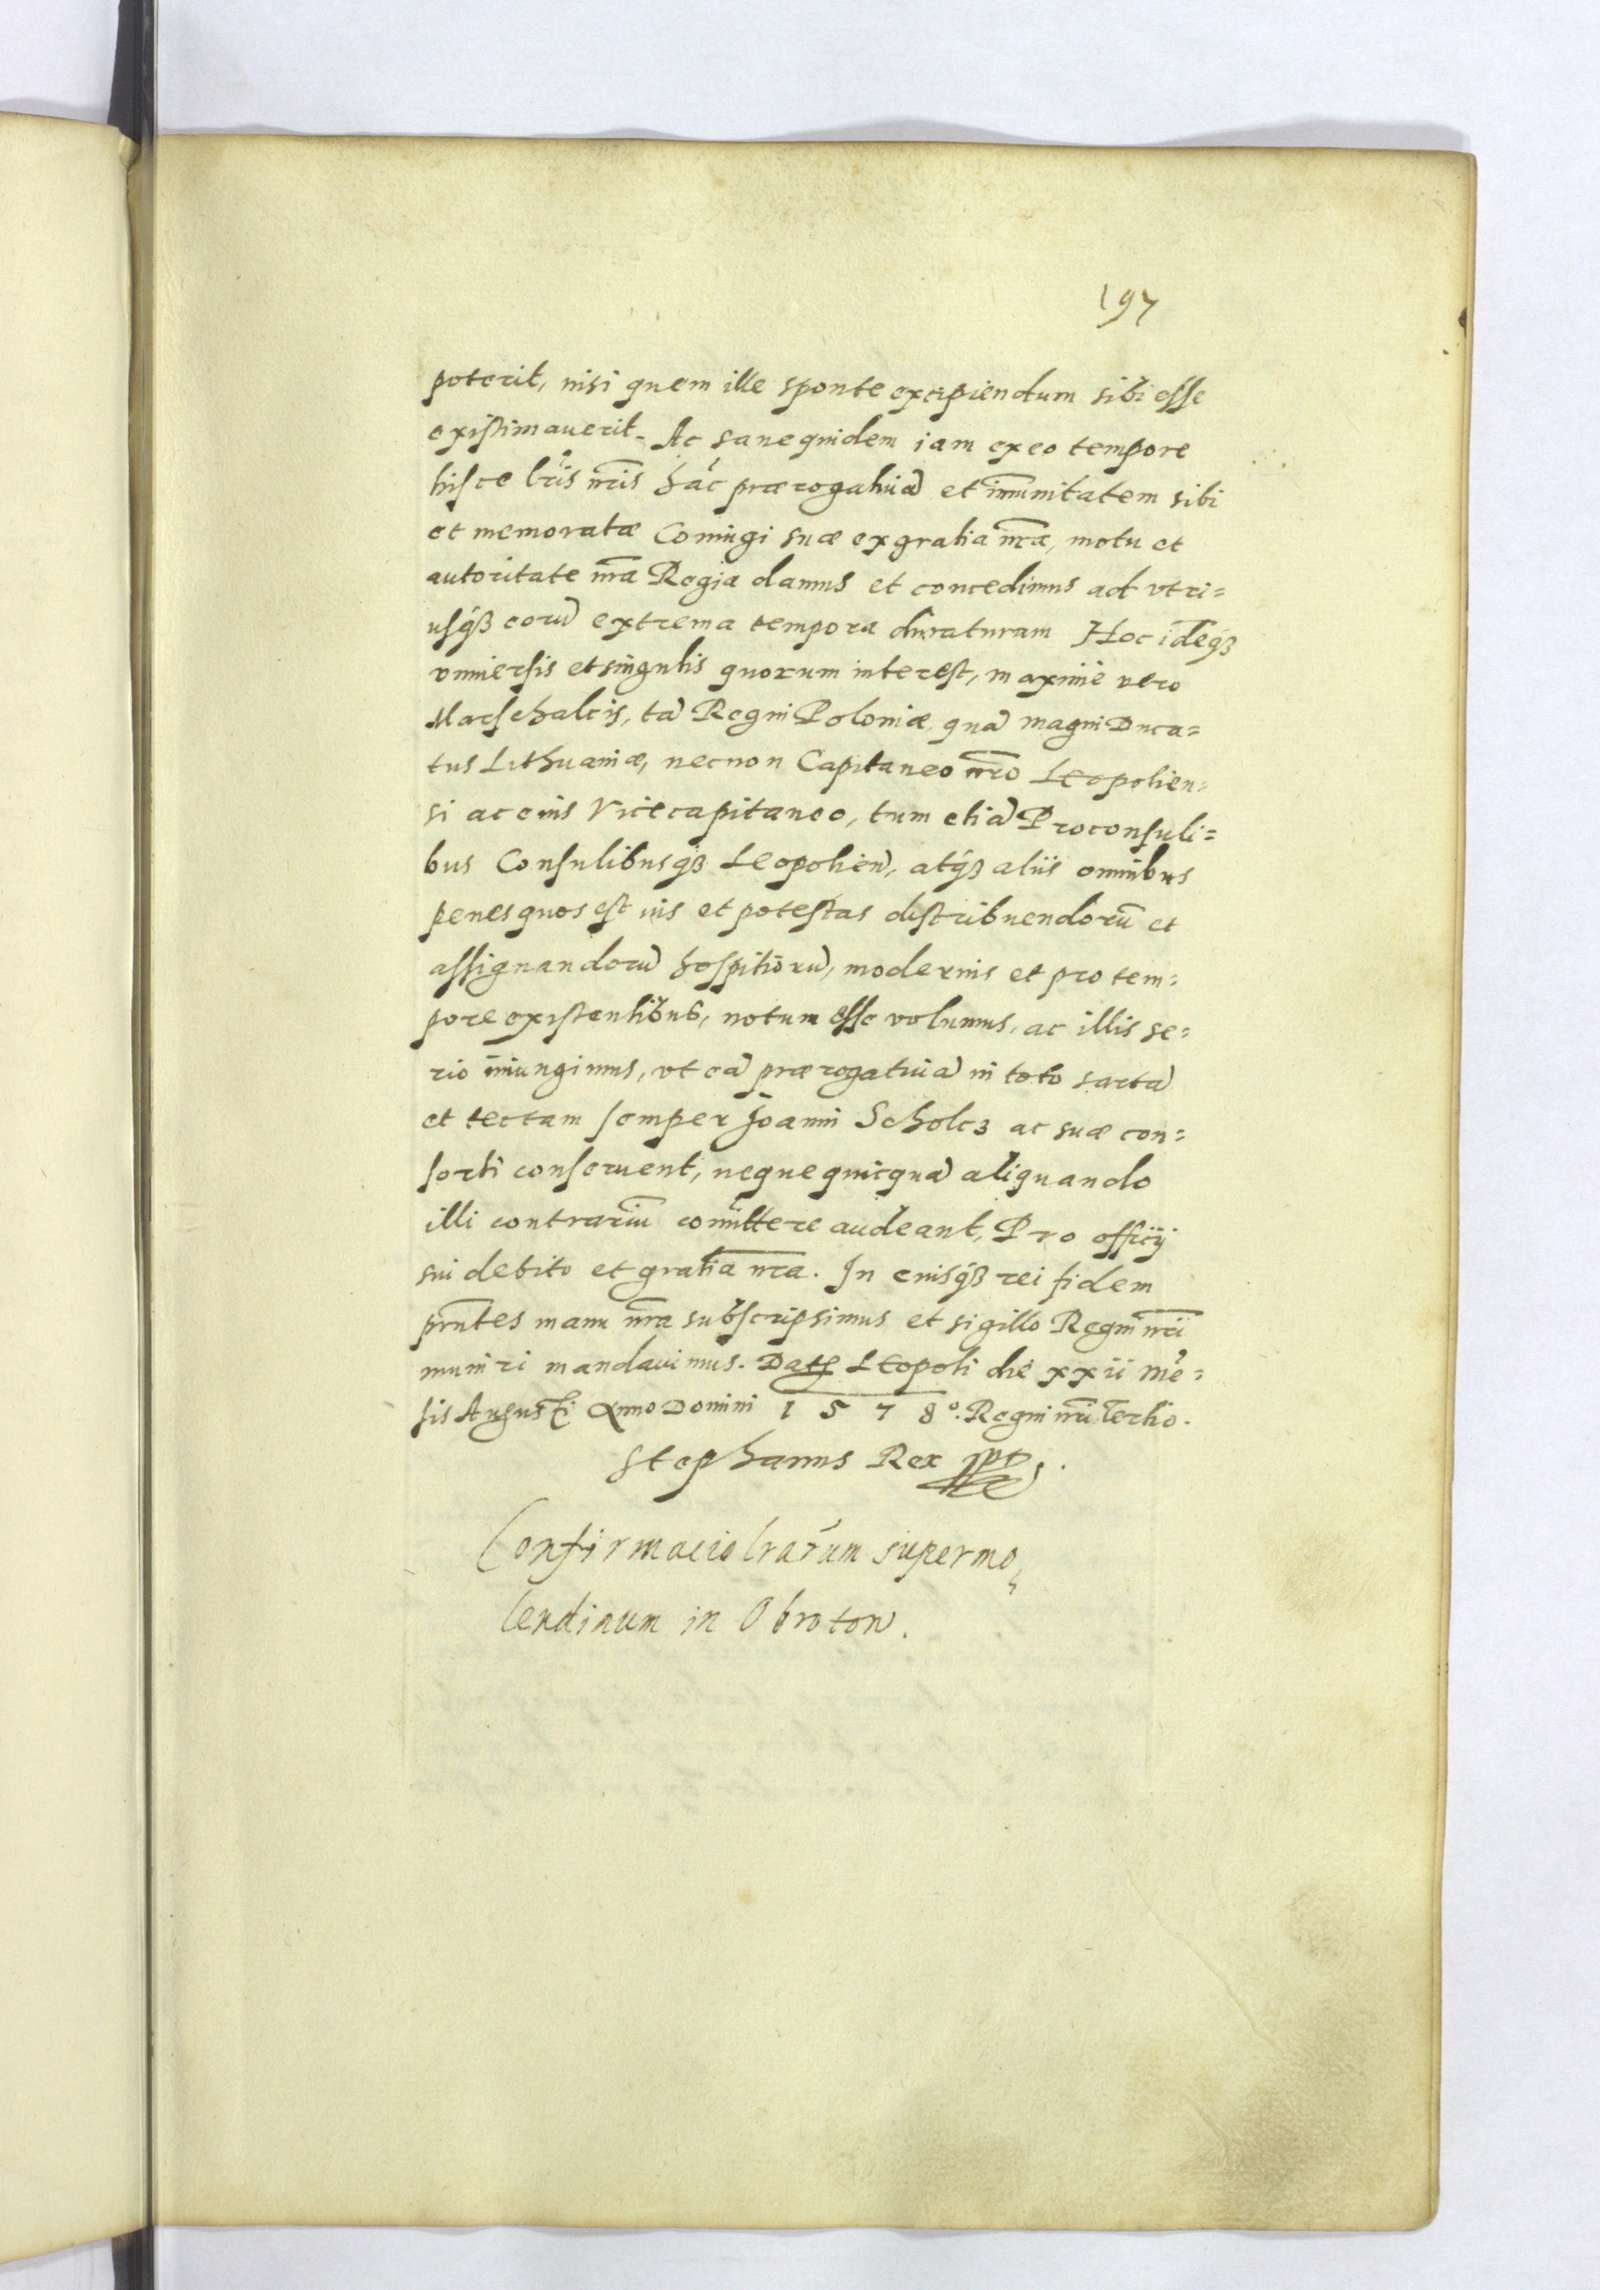 197
poterit, nisi quem ille sponte excipiendum sibi esse
existimauerit. Ac sane quidem iam ex eo tempore
hisce lr̃is nr̃is hãc prærogatiuã et im̃unitatem sibi
et memoratæ Coniugi suæ ex gratia nr̃a, motu et
autoritate nr̃a Regia damus et concedimus ad vtri=
usq́ȝ eorũ extrema tempora duraturam Hoc idẽq́ȝ
vniuersis et singulis quorum interest, maximè vero
Marschalcis, tã Regni Poloniæ, quã magni Duca=
tus Lithuaniæ, necnon Capitaneo nr̃o Leopolien=
si ac eius Vicecapitaneo, tum etiã Proconsuli=
bus Consulibusq́ȝ Leopolien̄, atq́ȝ aliis omnibus
penes quos est uis et potestas distribuendorũ et
assignandorũ hospitiorũ, modernis et pro tem=
pore existentibus, notum esse volumus, ac illis se=
rio iniungimus, vt eã prærogatiuã in toto sartã
et tectam semper Joanni Scholcz ac suæ con=
sorti conseruent, neque quicquã aliquando
illi contrariũ com̃ittere audeant, Pro officij
sui debito et gratia nr̃a. In cuiusq́ȝ rei fidem
pñtes manu nr̃a subscripsimus et sigillo Regni nr̃i
muniri mandauimus. Datꝭ Leopoli die xxii mẽ=
sis Augusti Anno Domini 1 5 7 8º. Regni nr̃i Tertio.
Stephanus Rex
Confirmacio lrarum super mo
lendinum in Obroton.